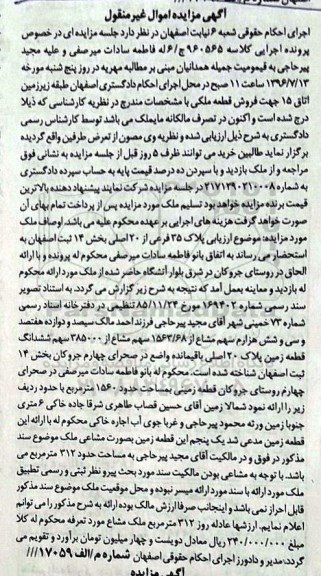 آگهی مزایده اموال غیرمنقول
اجرای احکام حقوقی شعبه ۶ نیابت اصفهان در نظر دارد جلسه مزایده ای در خصوص
پرونده اجرایی کلاسه ۹۶۰۵۶۵ ج/۶ له فاطمه سادات میرصفی و علیه مجید
پیرحاجی به قیمومیت جمیله همدانیان مبنی بر مطالبه مهریه در روز پنج شنبه مورخه
۱۳۹۶/۷/۱۳ ساعت ۱۱ صبح در محل اجرای احکام دادگستری اصفهان طبقه زیرزمین
اتاق ۱۵ جهت فروش قطعه ملکی با مشخصات مندرج در نظریه کارشناسی که ذیلا
درج شده است و اکنون در تصرف مالکانه می‌باشد توسط کارشناس رسمی
دادگستری به شرح ذیل ارزیابی شده و نظریه وی مصون از تعرض طرفین واقع گردیده
برگزار نماید طالبین خرید می توانند ظرف ۵ روز قبل از جلسه مزایده به نشانی فوق
مراجعه و از ملک بازدید و با سپردن ده درصد قیمت پایه به حساب سپرده دادگستری
به شماره ۲۱۷۱۲۹۰۲۱۰۰۰۸ در جلسه مزایده شرکت نمایند پیشنهاد دهنده بالاترین
قیمت برنده مزایده خواهد بود تسلیم ملک مورد مزایده پس از پرداخت تمام بهای آن
صورت خواهد گرفت هزینه های اجرایی بر عهده محکوم علیه می باشد. اوصاف ملک
مورد مزایده: موضوع ارزیابی پلاک ۳۵ فرعی از ۲۰ اصلی بخش ۱۴ ثبت اصفهان به
استحضار می رساند به اتفاق بانو فاطمه سادات میرصفی محکوم له پرونده و با ارائه
الحاق در روستای جروکان در شرق بلوار آتشگاه حاضر شده از ملک مورد ارائه محکوم
له بازدید و معاینه بعمل آمد که نتیجه به شرح زیر گزارش می گردد. به استناد تصویر
سند رسمی شماره ۱۶۹۴۰۲ مورخ ۸۵/۱۱/۲۴ تنظیمی در دفترخانه اسناد رسمی
شماره ۷۳ خمینی شهر آقای مجید پیرحاجی فرزند احمد مالک سیصد و دوازده هفتصد
و سی و شش هزارم سهم مشاع از ۱۵۶۳/۶۸ سهم مشاع از ۳۸۵۰۰۰ سهم ششدانگ
قطعه زمین پلاک ۲۰ اصلی باقیمانده واضع در صحرای چهارم جروکان بخش ۱۴
ثبت اصفهان شناخته شده است. محکوم له بانو فاطمه سادات میرصفی در صحرای
چهارم روستای جروکان قطعه زمینی بساحت حدود ۱۵۶۰ مترمربع با حدود ردیف
زیر را ارائه نمود شمالا زمین آقای حسین قصاب طاهری شرقا جاده خاکی ۶ متری
جنوبا زمین ورثه محمود پیرحاجی و غربا جوی آب اجاره خاکی محکوم له با ارائه این
قطعه زمین مدعی شد یک پنجم این قطعه زمین بصورت مشاعی ملک موضوع سند
مذکور در فوق و در مالکیت آقای مجید پیرحاجی به مساحت حدود ۳۱۲ مترمربع می
باشد. با توجه به مشاعی بودن مالکیت سند مورد بحث پیرو نظر ثبتی و رسمی تطبیق
ملک مورد ارائه با سند مورد ارائه میسر نبوده و محل موقعیت ملک موضوع سند مذکور
قابل احراز نمی باشد و اینجانب صرفا ارزش مالک بوده ارائه به شرح مذکور را می توانم
اعلام نمایم. ارزشها عادله روز ۳۱۲ مترمربع ملک مشاع مورد تعرفه محکوم له کلا
مبلغ ۲۴۰/۰۰۰/۰۰۰ ریال معادل دویست و چهار میلیون تومان برآورد و تقویم می
گردد. مدیر و دادورز اجرای احکام حقوقی اصفهان شماره م/الف ۱۷۰۵۹ ///
آگهی مزایده